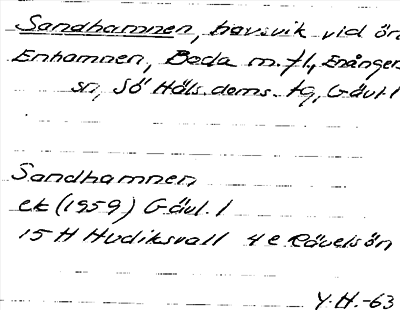 Sandhamnen, havsvik vid ön
Enhamnen, Boda m. fl., Enånger
sn, Sö Häls doms. tg, Gävl. l
Sandhamnen
ek (1959) Gävl. l
15 H Hudiksvall 4 e Rävelsön
Y.H.-63